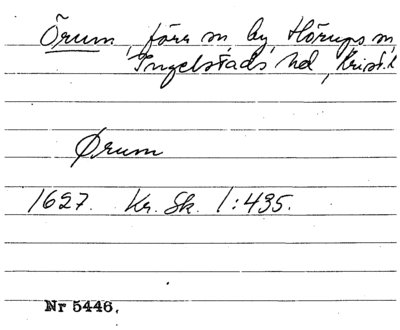 Örum, förr sn by, Hörups sn,
Ingelstads hd, Krist.l
Ørum
1627. Kr. Sk. 1:435.
Nr 5446.